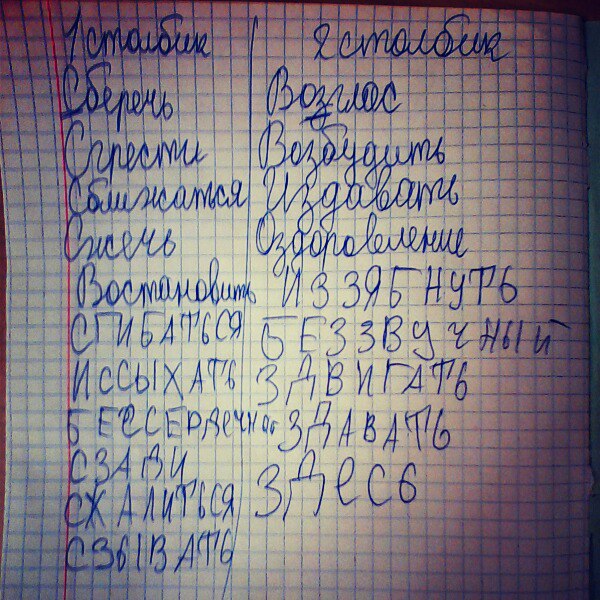 1 столбик | 2 столбик
Сберечь Возглас
Сгрести Возбудить
Сближаться Издавать
Сжечь Оздоровление
Востановить ИЗЗЯБНУТЬ
СГИБАТЬСЯ БЕЗЗВУЧНЫЙ
ИССЫХАТЬ ЗДВИГАТЬ
БЕССЕРДечное ЗДАВАТЬ
СЗАДИ ЗДеСЬ
СЖАЛИТЬСЯ
СЗЫВАТЬ